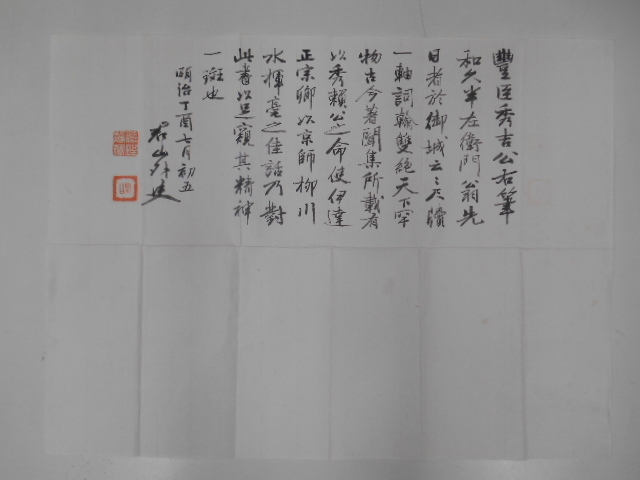 豐臣秀吉公右筆
和久半左衛門翁先
日者於御城云々尺牘
一軸詞翰雙絕天下罕
物古今著聞集所載有
以秀賴公之命使伊達
正宗卿以京師柳川
水揮毫之佳話乃對
此書以足窺其精神
一斑也
明治丁酉七月初五